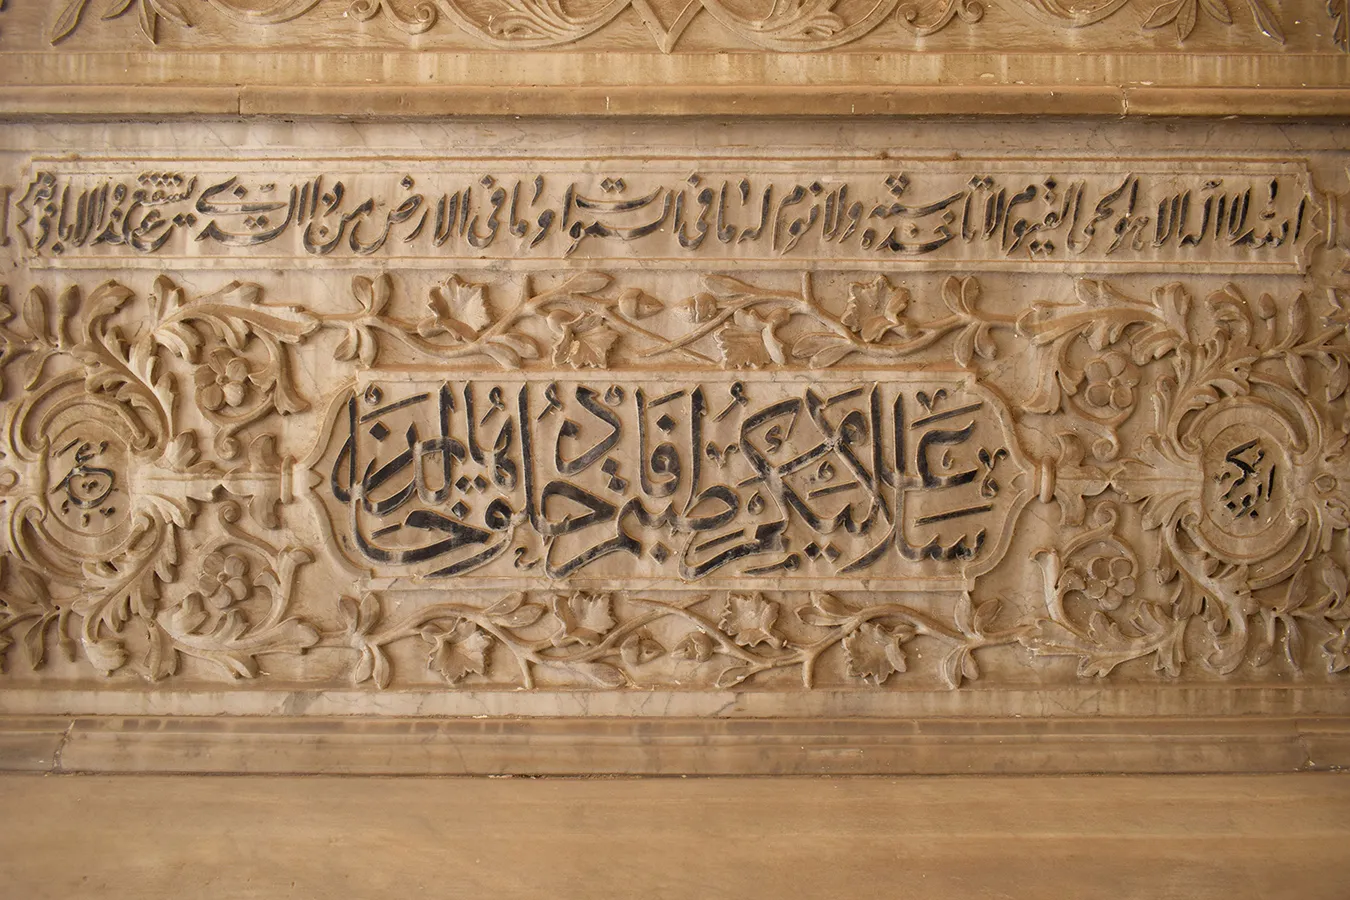 الله لا اله الا هو الحي القيوم لا تاخذه سنة ولا نوم له ما في السموات وما في الارض من ذا الذي يشفع عنده الا باذنه
ابوبكر
سلام عليكم طبتم فادخلوها خالدين